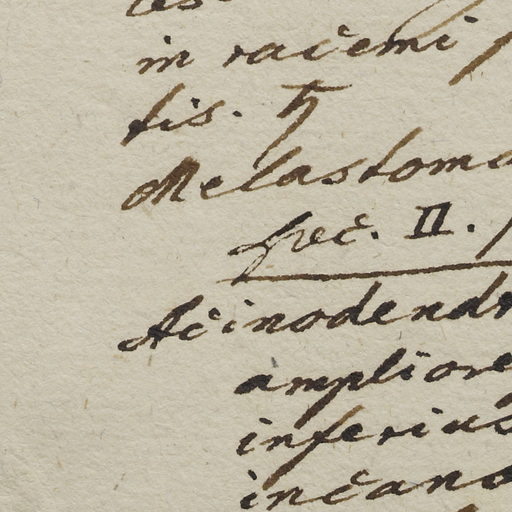 in racemi
tis. ♄
Melastoma
spec. II.
Acinodendr
ampliore
inferius
incano